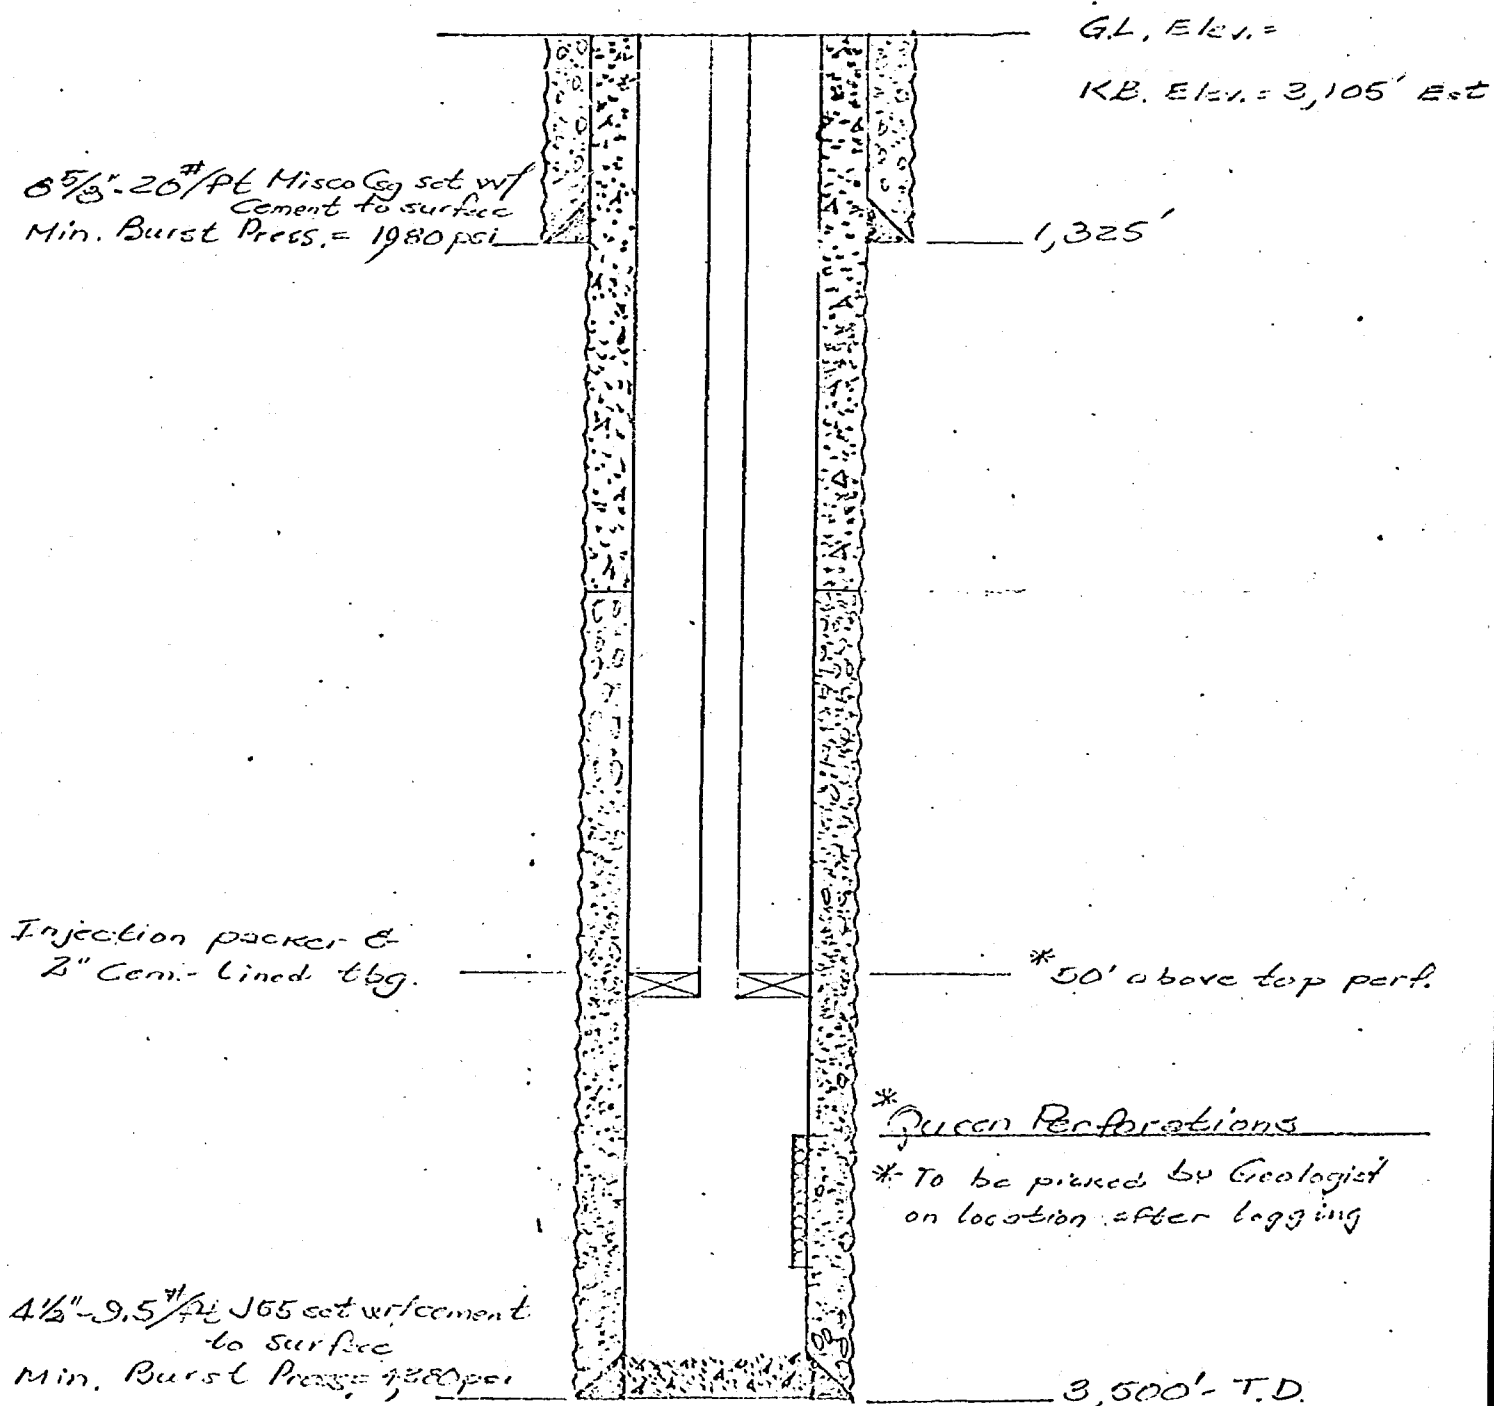 G.L. Elev. =
K.B. Elev. = 3,105' Est
8 5/8"-20#/ft Misco Csg set w/
Cement to surface
Min. Burst Press. = 1980 psi
1,325'
Injection packer &
2" Cem.-lined tbg.
*50' above top perf.
*Queen Perforations
*To be picked by Geologist
on location after logging
4½"-9.5#/ft J55 set w/cement
to surface
Min. Burst Press. = psi
3,500'-T.D.